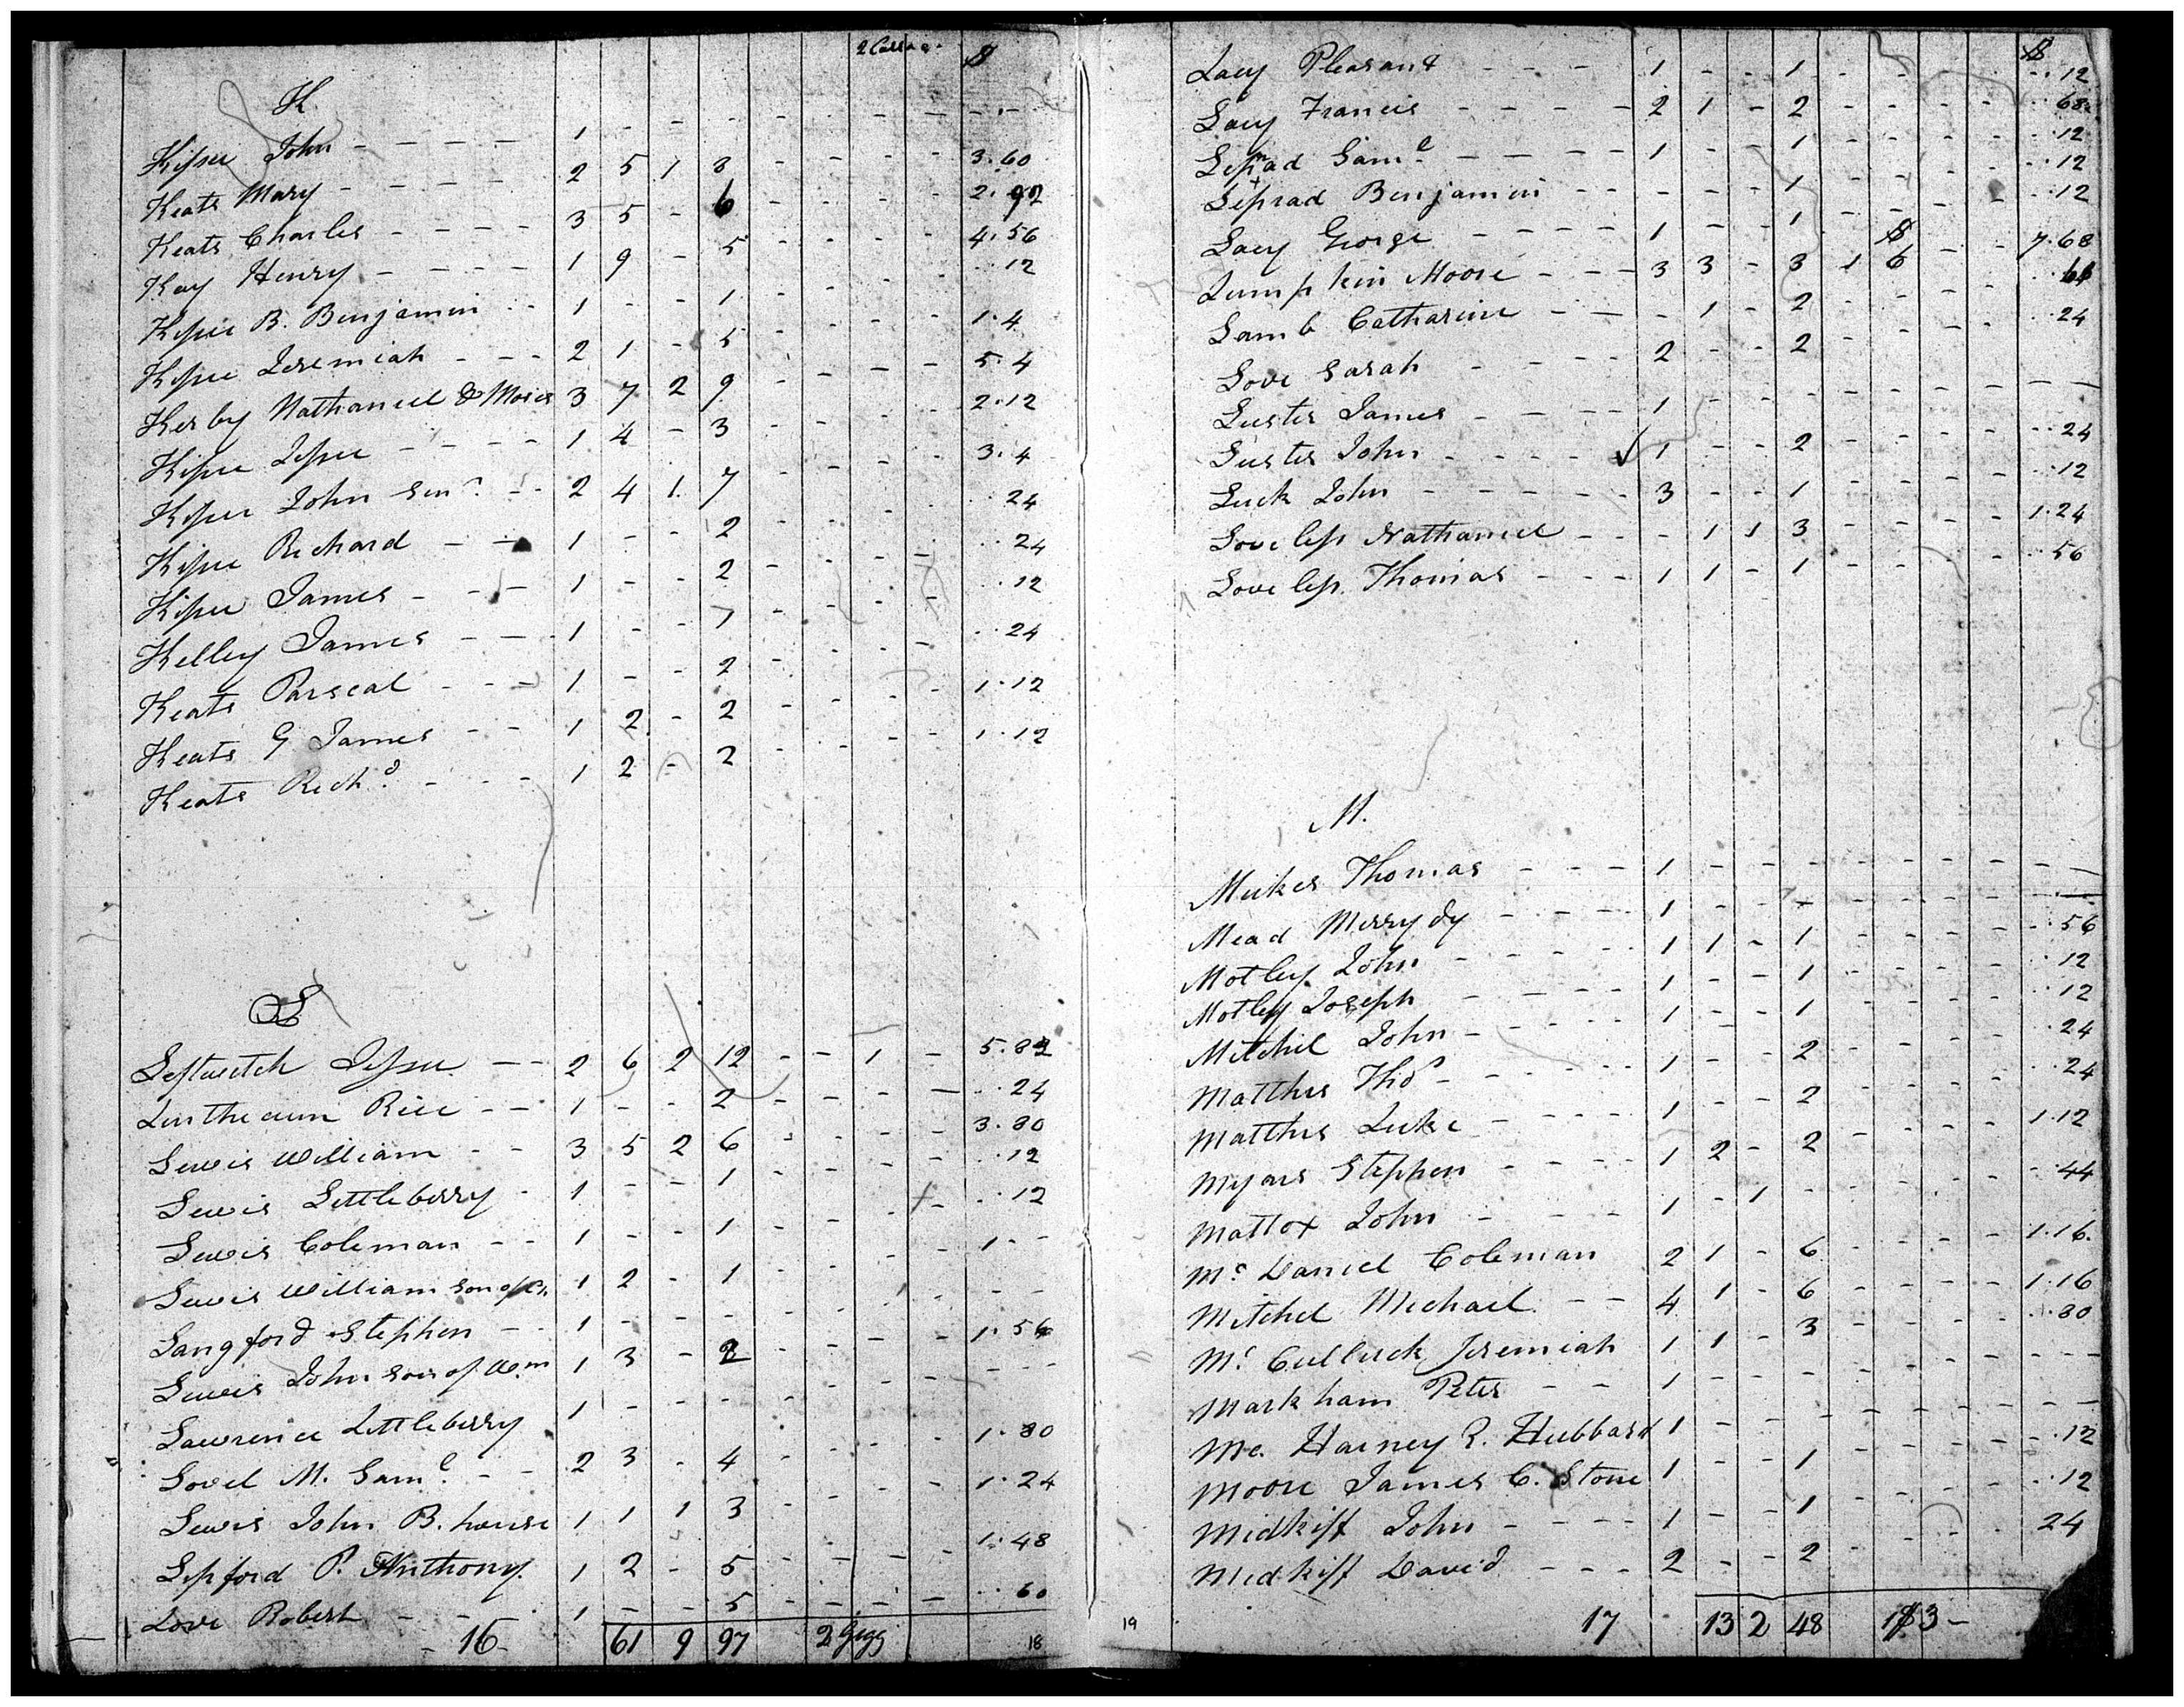 2 Call $
K.
Kissee John - - - - 1 - - - - - - - - . -
Keats Mary - - - - 2 5 1 3 - - - - 3.60
Keats Charles - - - - 3 5 - 6 - - - - 2.92
Kay Henry - - - - 1 9 - 5 - - - - 4.56
Kissee B. Benjamin - - 1 - - 1 - - - - . . 12
Kissee Jeremiah - - - 2 1 - 5 - - - - 1.4
Kerby Nathaniel & Moses 3 7 2 9 - - - - 5.4
Kissee Jesse - - - - 1 4 - 3 - - - - 2.12
Kissee John Senr. - - 2 4 1 7 - - - - 3.4
Kissee Richard - - 1 - - 2 - - - - . . 24
Kissee James - - - 1 - - 2 - - - - . . 24
Kelley James - - - 1 - - 1 - - - - . . 12
Keats Parscal - - - 1 - - 2 - - - - . . 24
Keats G James - - 1 2 - 2 - - - - 1.12
Keats Richd. - - - 1 2 - 2 - - - - 1.12
L
Leftwitch Jesse - - 2 6 2 12 - - 1 - 5.82
Linthecum Rice - - 1 - - 2 - - - - . . 24
Lewis William - - 3 5 2 6 - - - - 3.80
Lewis Littleberry - 1 - - 1 - - - - . . 12
Lewis Coleman - - 1 - - 1 - - - - . . 12
Lewis William son of 1 2 - 1 - - - - 1 - -
Langford Stephen - - 1 - - - - - - - - -
Lewis John son of Wm 1 3 - 2 - - - - 1.56
Lawrence Littleberry 1 - - - - - - - - - -
Lovel M. Saml. - - 2 3 - 4 - - - - 1.80
Lewis John B. house 1 1 1 3 - - - - 1.24
Lipford P. Anthony. 1 2 - 5 - - - - 1.48
Love Robert - - - 1 - - 5 - - - - . . 60
- 16 - 61 9 97 2 Gigs 18
$
Lacy Pleasant - - - 1 - - 1 - - - - . . 12
Lacy Francis - - - - 2 1 - 2 - - - - . . 68
Leprad Saml. - - - - 1 - - 1 - - - - . . 12
Leprad Benjamin - - - - - 1 - - - - . . 12
Lacy George - - - - 1 - - 1 - - - - . . 12
Lumpkin Moore - - - 3 3 - 3 1 $6 - - 7.68
Lamb Catharine - - - - 1 - 2 - - - - . . 68
Love Sarah - - - - 2 - - 2 - - - - . . 24
Luster James - - - - 1 - - - - - - - - -
Luster John - - - - ✓ 1 - - 2 - - - - . . 24
Luck John - - - - - - 3 - - 1 - - - - . . 12
Loveless Nathaniel - - - 1 1 3 - - - - 1.24
Loveless Thomas - - - 1 1 - 1 - - - - . . 56
M.
Mukes Thomas - - - 1 - - - - - - - - -
Mead Merrydy - - - - 1 - - - - - - - - -
Motley John - - - - 1 1 - 1 - - - - . . 56
Motley Joseph - - - - 1 - - 1 - - - - . . 12
Mitchel John - - - - - 1 - - 1 - - - - . . 12
Matthis Thos - - - - - 1 - - 2 - - - - . . 24
Matthis Luke - - - - 1 - - 2 - - - - . . 24
Myars Stephen - - - - 1 2 - 2 - - - - 1.12
Mattox John - - - - 1 - 1 - - - - - . . 44
Mc Daniel Coleman 2 1 - 6 - - - - 1.16.
Mitchel Michael. - - 4 1 - 6 - - - - 1.16
Mc Culluck Jeremiah 1 1 - 3 - - - - . . 80
Markham Peter - - 1 - - - - - - - - - -
Mc. Haney R. Hubbard 1 - - - - - - - - -
Moore James C. Stone 1 - - 1 - - - - . . 12
Midkiff John - - - - 1 - - 1 - - - - . . 12
Midkiff David - - - 2 - - 2 - - - - 24
19 17 13 2 48 1$3 -